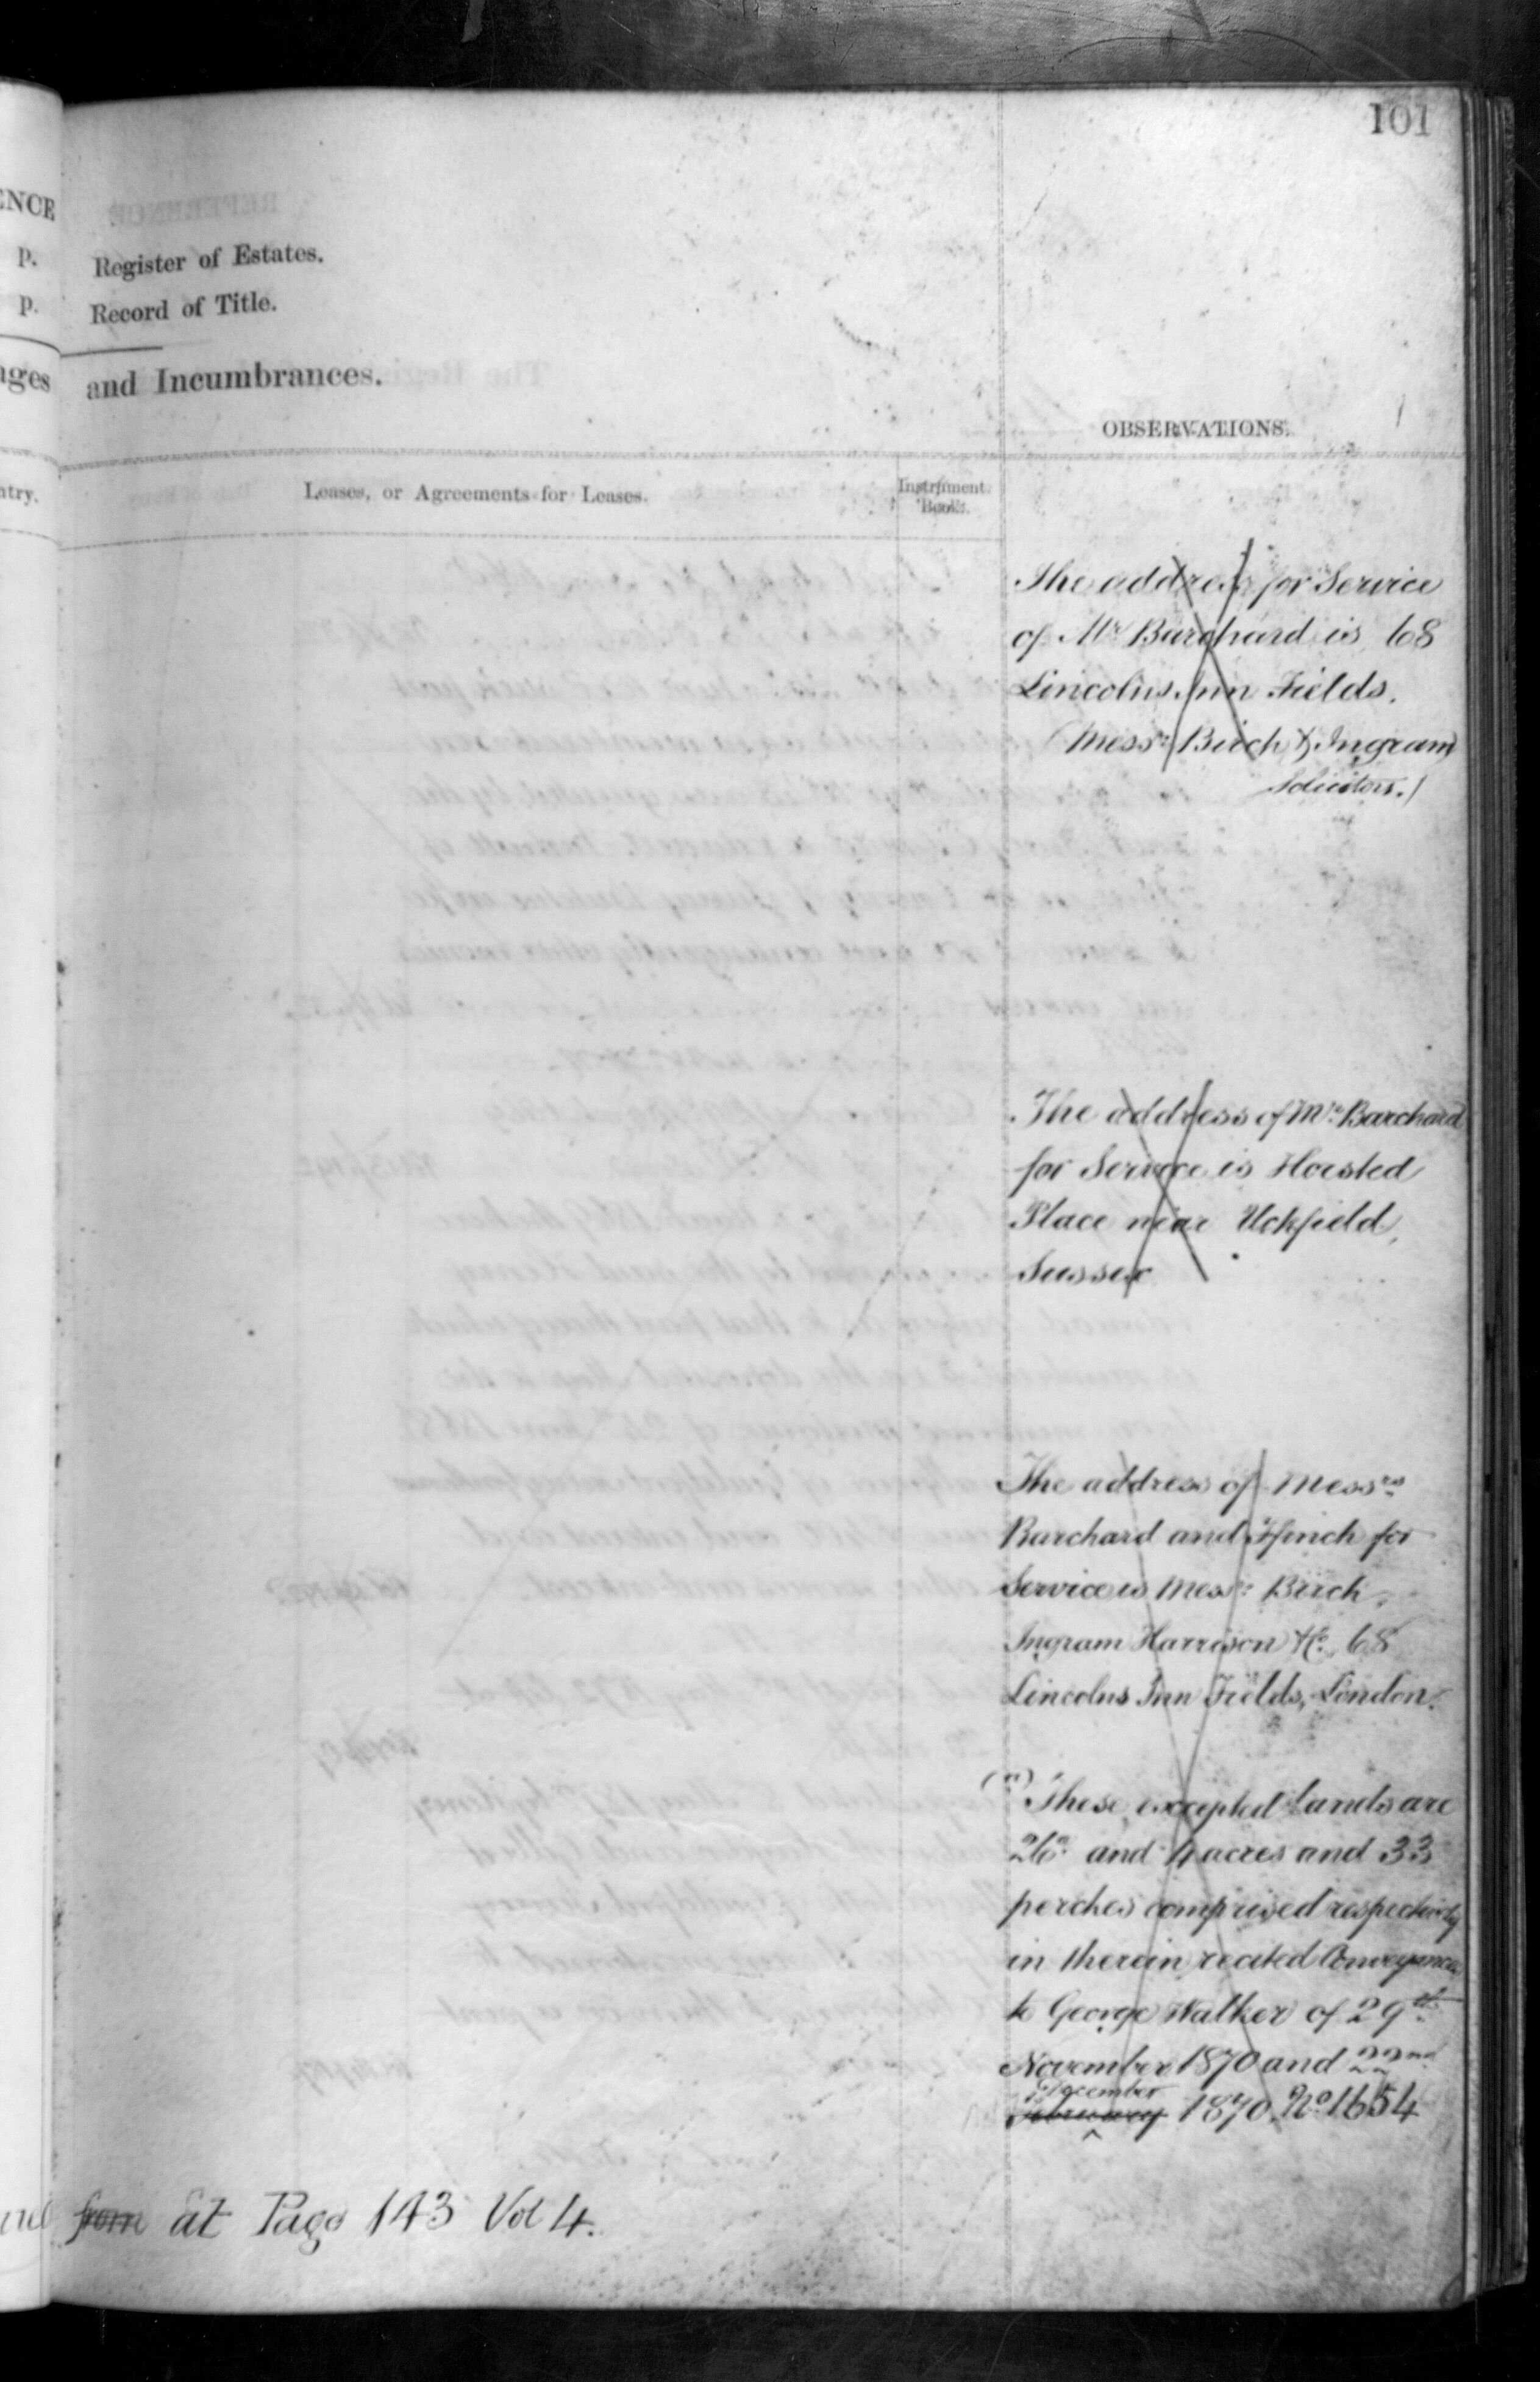 101
ENCE
p. Register of Estates.
p. Record of Title.
ages and Incumbrances.
OBSERVATIONS.
ntry.
Leases, or Agreements for Leases.
Instrument Book.
The address for Service
of Mr Barchard is 68
Lincolns Inn Fields.
(Messrs Birch & Ingram
Solicitors.)
The address of Mrs Barchard
for Service is Horsted
Place near Uckfield,
Sussex
The address of Messrs
Barchard and Ffinch for
Service is Messrs Birch,
Ingram Harrison & Co. 68
Lincolns Inn Fields, London.
(a) These excepted lands are
26a and 4 acres and 33
perches comprised respectively
in therein recited Conveyances
to George Walker of 29th
November 1870 and 22nd
December
February 1870. No 1654
from at Page 143 Vol 4.